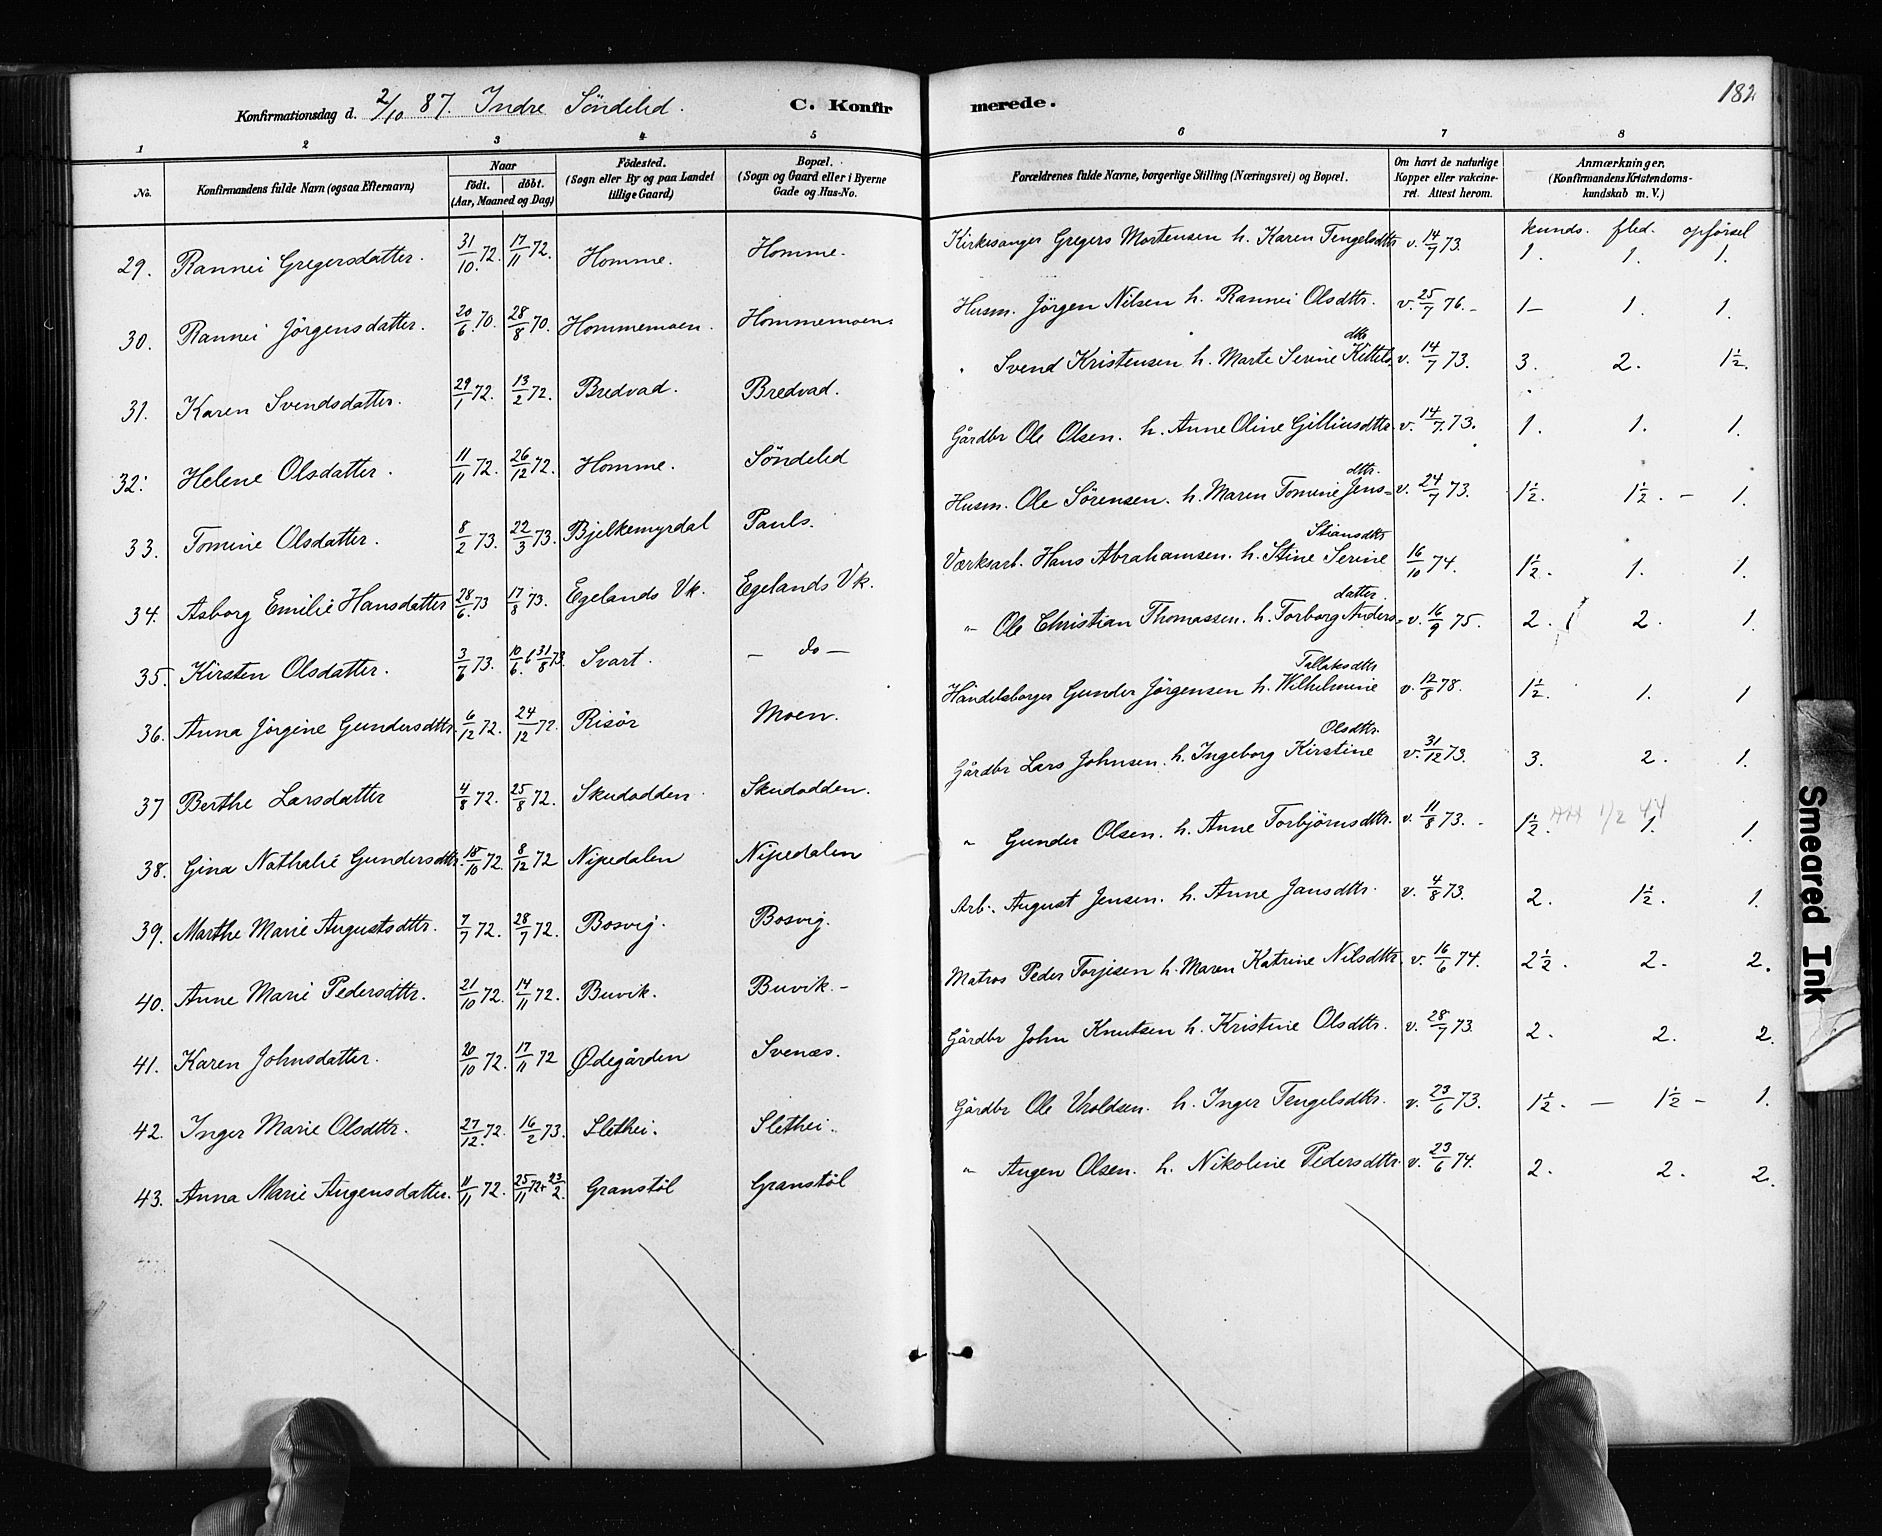 182
Konfirmationsdag d. 2/10 87. Indre Söndeled. C. Konfirmerede.
1 2 3 4 5 6 7 8
No. Konfirmandens fulde Navn (ogsaa Efternavn) Naar födt. döbt. (Aar, Maaned og Dag) Födested. (Sogn eller By og paa Landet tillige Gaard) Bopæl. (Sogn og Gaard eller i Byerne Gade og Hus-No. Forældrenes fulde Navne, borgerlige Stilling (Næringsvei) og Bopæl. Om havt de naturlige Kopper eller vakcineret. Attest herom. Anmærkninger, (Konfirmandens Kristendomskundskab m. V.)
kunds. flid. opförsel
29. Rannei Gregersdatter. 31/10 72. 17/11 72. Homme. Homme. Kirkesanger Gregers Mortensen h. Karen Tengelsdttr v. 14/7 73. 1. 1. 1.
30. Rannei Jörgensdatter. 20/6 70. 28/8 70. Hommemoen. Hommemoen. Husm. Jörgen Nilsen h. Rannei Olsdttr. v. 25/7 76. - 1 - 1. 1.
31. Karen Svendsdatter. 29/1 72. 13/2 72. Bredvad. Bredvad. " Svend Kristensen h. Marte Serine Kittelsdtr v. 14/7 73. 3. 2. 1½.
32. Helene Olsdatter. 11/11 72. 26/12 72. Homme. Söndeled Gårdbr Ole Olsen. h. Anne Oline Gilliusdttr v. 14/7 73. 1. 1. 1.
33. Tomine Olsdatter. 8/2 73. 22/3 73. Bjelkemyrdal Pauls. Husm. Ole Sörensen. h. Maren Tomine Jens=dttr. v. 24/7 73. 1½. 1½. - 1.
34. Asborg Emilie Hansdatter 28/6 73 17/8 73. Egelands Vk. Egelands Vk. Værksarb. Hans Abrahamsen. h. Stine Serine Stiansdttr 16/10 74. 1½. 1. 1.
35. Kirsten Olsdatter. 3/6 73. 10/6 31/8 73. Svart. — do — " Ole Christian Thomassen. h. Torborg Anders=datter. v. 16/9 75. 2. 2. 1.
36. Anna Jörgine Gundersdttr. 6/12 72. 24/12 72. Risör Moen. Handelsborger Gunder Jörgensen h. Wilhelmine Tallaksdttr v. 12/8 78. 1½. 1. 1
37 Berthe Larsdatter 4/8 72. 25/8 72. Skudodden. Skudodden. Gårdbr Lars Johnsen. h. Ingeborg Kirstine Olsdttr. v. 31/12 73. 3. 2. 1.
38. Gina Nathalie Gundersdttr. 18/10 72. 8/12 72 Nipedalen Nipedalen " Gunder Olsen. h. Anne Torbjörnsdttr. v. 11/8 73. - 1½. 1. 1.
39. Marthe Marie Augustsdttr. 7/7 72. 28/7 72. Bosvig. Bosvig. Arb. August Jensen. h. Anne Jansdttr. v. 4/8 73. 2. 1½. 1.
40. Anne Marie Pedersdttr. 21/10 72. 14/11 72. Buvik. Buvik. - Matros Peder Torjisen h. Maren Katrine Nilsdttr. v. 16/6 74. 2½. 2. 2.
41. Karen Johnsdatter. 20/10 72. 17/11 72 Ødegården Svenæs. Gårdbr John Knutsen h. Kristine Olsdttr. v. 28/7 73. 2. 2. 2.
42. Inger Marie Olsdttr. 27/12 72. 16/2 73. Slethei. Slethei. Gårdbr Ole Uroldsen. h. Inger Tengelsdttr. v. 23/6 73. 1½. — 1½ - 1.
43. Anna Marie Augensdatter. 11/11 72. 25/11 72 + 23/2. Granstöl Granstöl " Augen Olsen. h. Nikoline Pedersdttr. v. 23/6 74. 2. 2. 2.
Smeared Ink